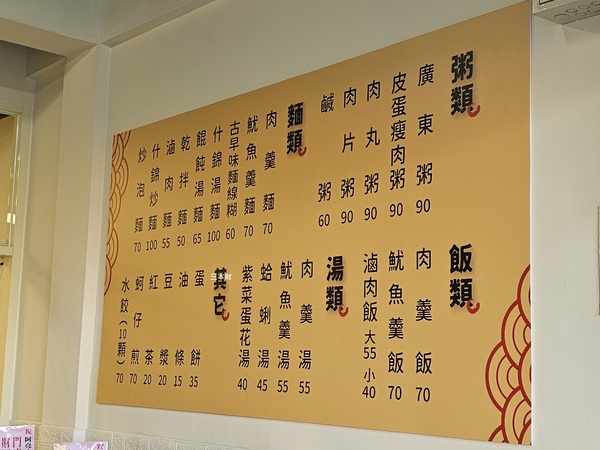 粥類
廣東粥 90
皮蛋瘦肉粥 90
肉丸粥 90
肉片粥 90
鹹粥 60
麵類
肉羹麵 70
魷魚羹麵 70
古早味麵線糊 60
什錦湯麵 100
餛飩湯麵 65
乾拌麵 50
滷肉麵 55
什錦炒麵 100
炒泡麵 70
飯類
肉羹飯 70
魷魚羹飯 70
滷肉飯 大55 小40
湯類
肉羹湯 55
魷魚羹湯 55
蛤蜊湯 45
紫菜蛋花湯 40
其它
蛋餅 35
油條 15
豆漿 20
紅茶 20
蚵仔煎 70
水餃(10顆) 70